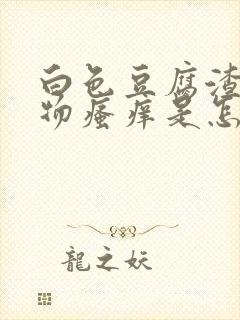 白色豆腐渣
物瘙痒是怎
龍之妖